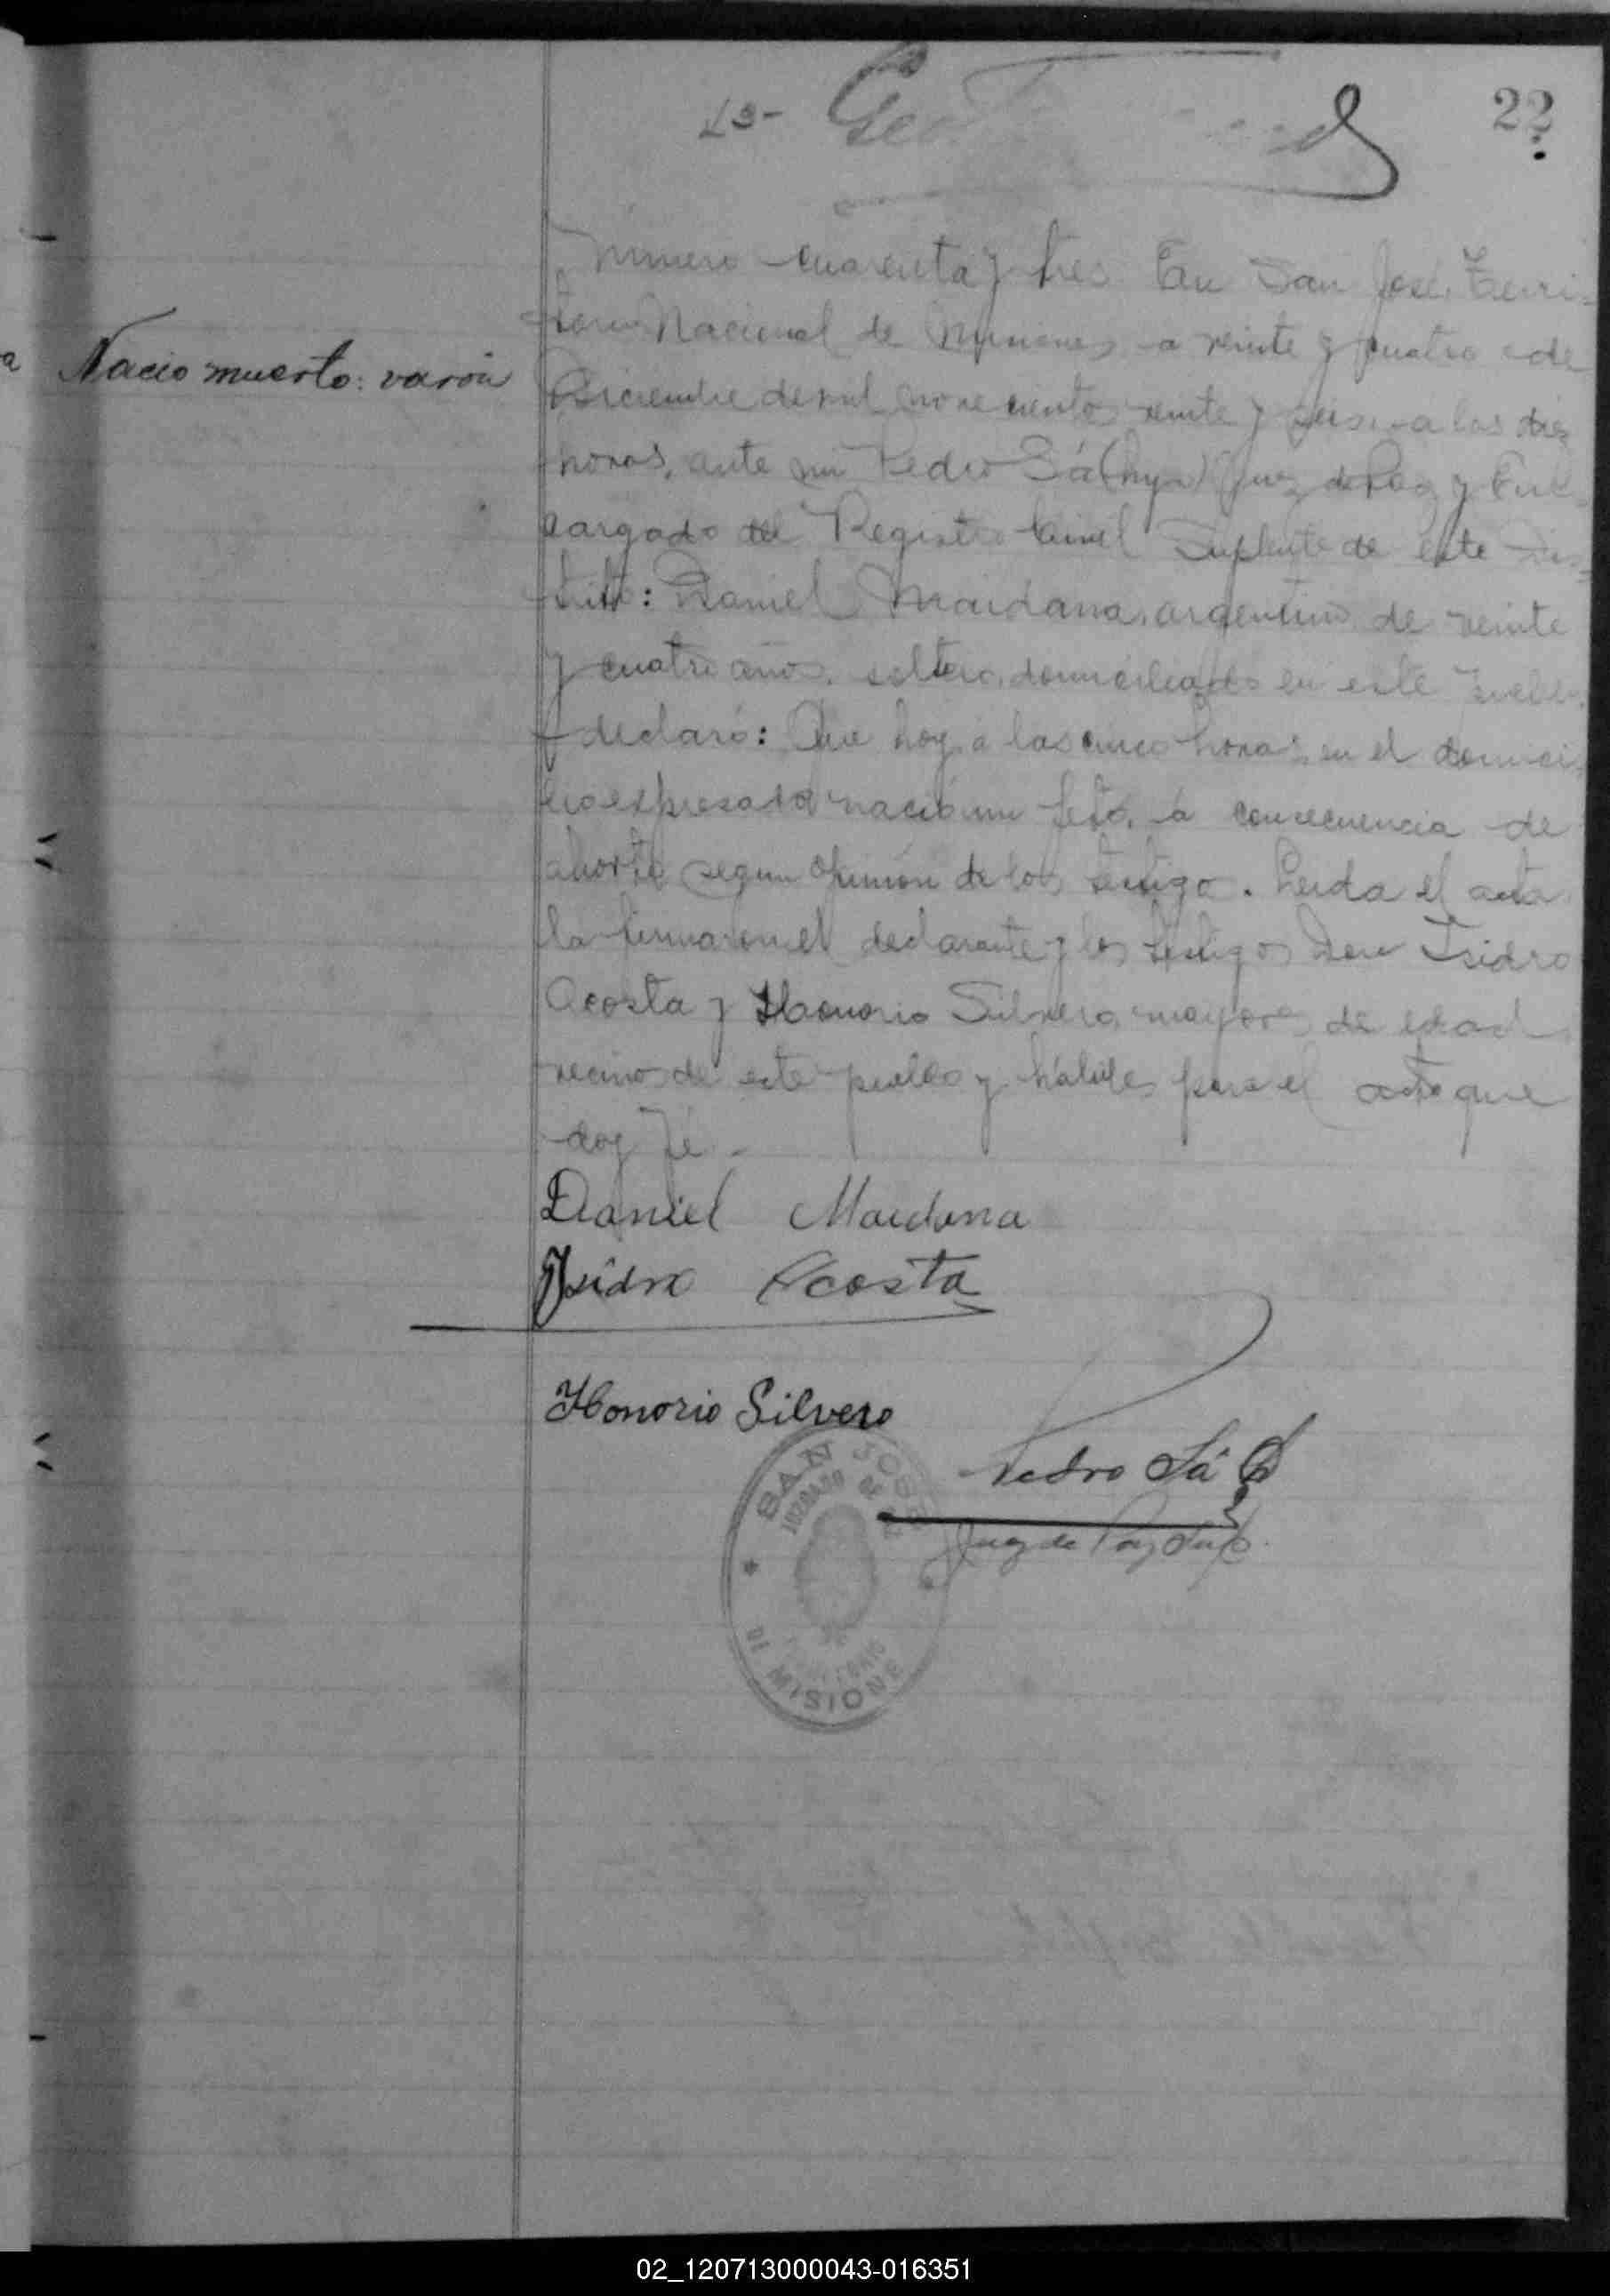 22
Nacio muerto: varón
Número cuarenta y tres En San José, Terri-
torio Nacional de Misiones a veinte y cuatro de
Diciembre de mil novecientos veinte y seis, a las diez
horas, ante mi Pedro Sá (hijo) Juez de Paz y En-
cargado del Registro Civil Suplente de este Dis-
trito: Daniel Maidana, argentino, de veinte
y cuatro años, soltero, domiciliado en este pueblo,
declaró: Que hoy a las cinco horas, en el domici-
lio expresado nació un feto, a consecuencia de
aborto segun opinión de los testigo. Leida el acta
la firmaron el declarante y los testigos Don Isidro
Acosta y Honorio Silvero, mayores de edad
vecinos de este pueblo y hábiles para el acto que
doy fé.-
Daniel Maidana
Isidro Acosta
Honorio Silvero
Pedro Sá h
Juez de Paz Sup.
SAN JOSE
JUZGADO DE
DE MISIONE
02_120713000043-016351